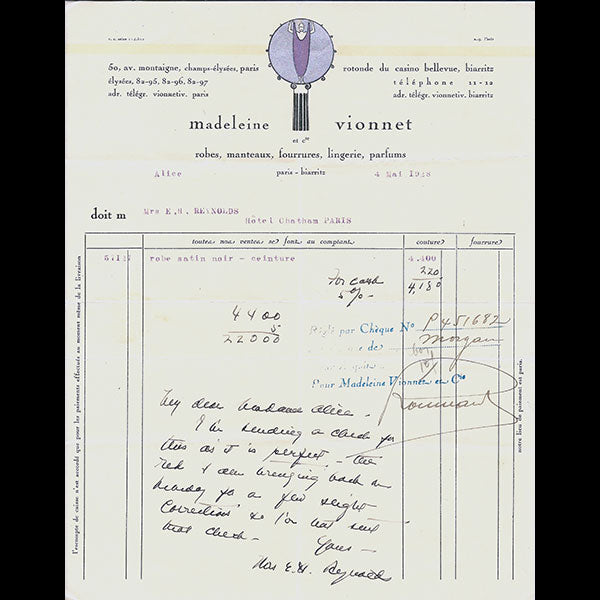 50, av. montaigne, champs-élysées, paris
élysées, 82-95, 82-96, 82-97
adr. télégr. vionnetiv. paris
rotonde du casino bellevue, biarritz
téléphone 11-10
adr. télégr. vionnetiv. biarritz
madeleine vionnet
et cie
robes, manteaux, fourrures, lingerie, parfums
paris - biarritz
Alice
4 Mai 1928
doit m Mrs E.H. REYNOLDS
Hôtel Chatham PARIS
toutes nos ventes se font au comptant
couture
fourrure
robe satin noir - ceinture
4.400
For cash
5%-
220
4,180
4400
5
22000
Réglé par Chèque No P 451682
de Morgan
Pour Madeleine Vionnet et Cie
My dear Madame Alice -
I am sending a check for
this as it is perfect - the
red I am bringing back on
Monday for a few slight
corrections so I'm not sent
that check -
Yours -
Mrs E.H. Reynolds
l'escompte de caisse n'est accordé que pour les paiements effectués au moment même de la livraison
notre lieu de paiement est paris.